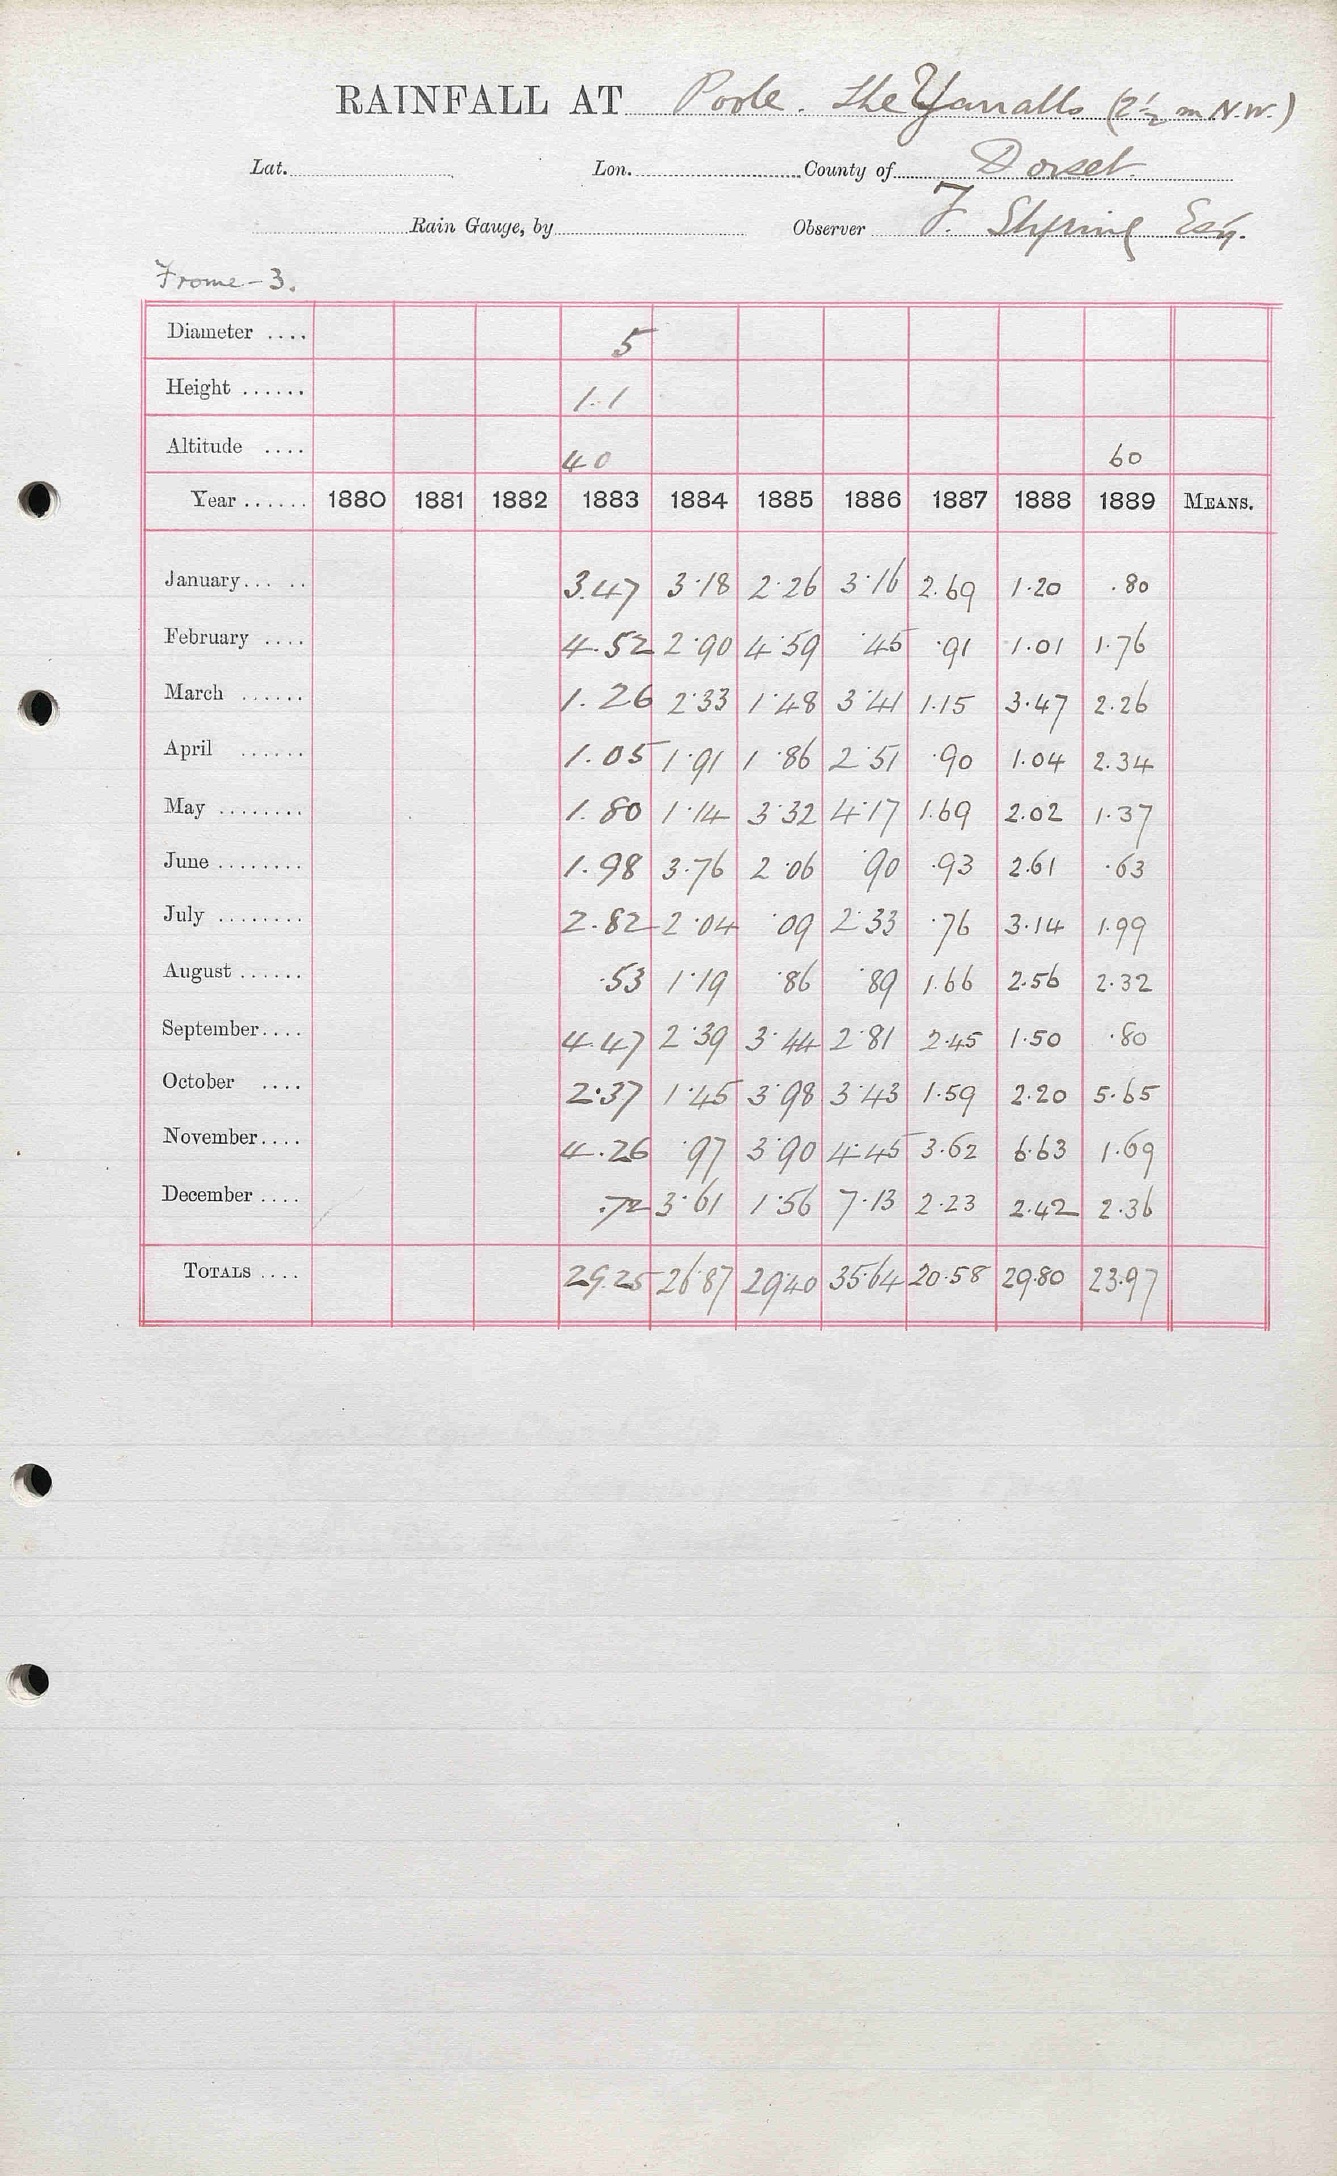 RAINFALL AT Poole. The Yarralls (2½ m N.W.)
Lat. Lon. County of Dorset.
Rain Gauge, by Observer F. Esq.
Frome-3.
Diameter .... 5
Height ...... 1.1
Altitude .... 40 60
Year ...... 1880 1881 1882 1883 1884 1885 1886 1887 1888 1889 MEANS.
January... .. 3.47 3.18 2.26 3.16 2.69 1.20 .80
February .... 4.52 2.90 4.59 .45 .91 1.01 1.76
March ...... 1.26 2.33 1.48 3.41 1.15 3.47 2.26
April ...... 1.05 1.91 1.86 2.51 .90 1.04 2.34
May ........ 1.80 1.14 3.32 4.17 1.69 2.02 1.37
June ........ 1.98 3.76 2.06 .90 .93 2.61 .63
July ........ 2.82 2.04 .09 2.33 .76 3.14 1.99
August ...... .53 1.19 .86 .89 1.66 2.56 2.32
September.... 4.47 2.39 3.44 2.81 2.45 1.50 .80
October .... 2.37 1.45 3.98 3.43 1.59 2.20 5.65
November.... 4.26 .97 3.90 4.45 3.62 6.63 1.69
December .... .72 3.61 1.56 7.13 2.23 2.42 2.36
TOTALS .... 29.25 26.87 29.40 35.64 20.58 29.80 23.97